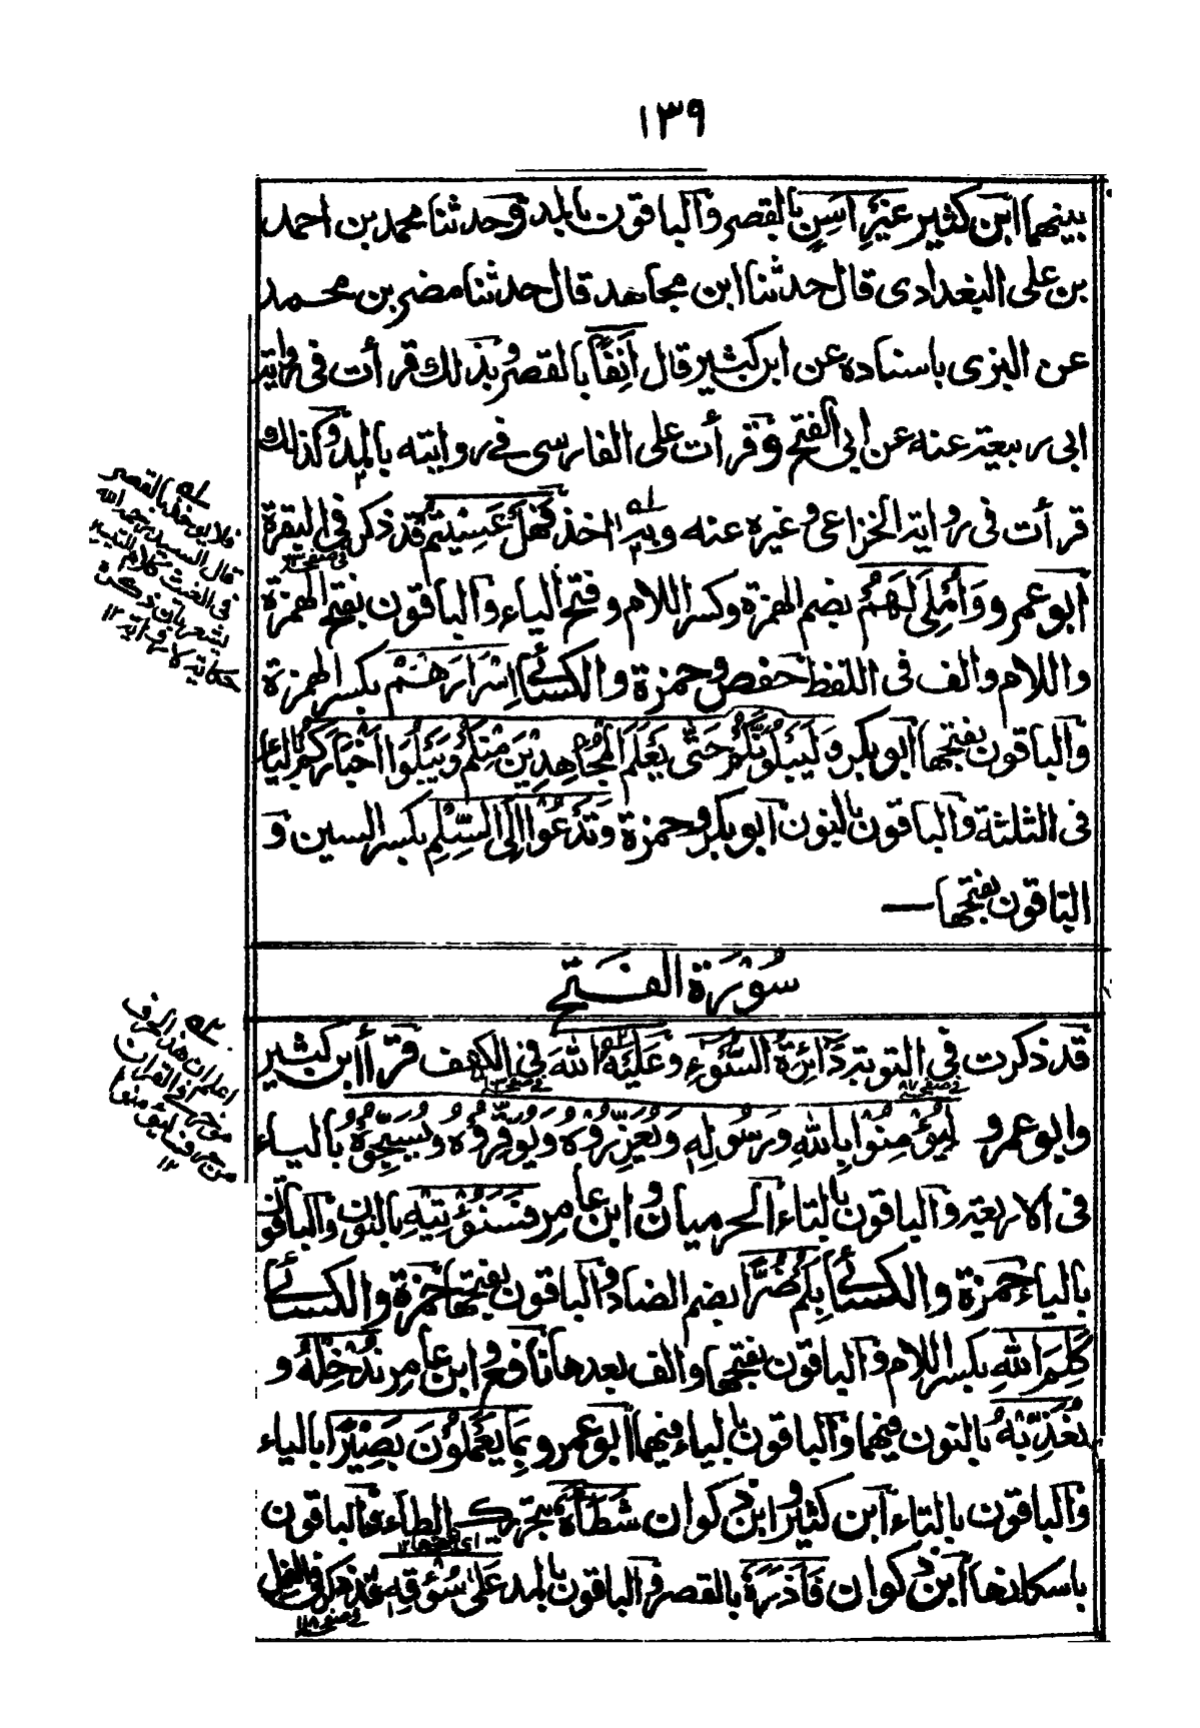 ١٣٩
بينهما ابن كثير غَيْرِ اَسِنٍ بالقصر والباقون بالمد وحدثنا محمد بن احمد
بن على البغدادى قال حدثنا ابن مجاهد قال حدثنا مضر بن محمد
عن البزى باسناده عن ابن كثير قال اَنِفًا بالقصر وبذلك قرأت فى رواية
ابى ربيعة عنه عن ابى الفتح وقرأت على الفارسى فى روايته بالمد وكذلك
قرأت فى رواية الخزاعى وغيره عنه وبه اخذ فَهَلْ عَسِيْتُمْ قد ذكر فى البقرة
فى صفحه
ابو عمرو وَاُمْلِىَ لَهُمْ بضم الهمزة وكسر اللام وفتح الياء والباقون بفتح الهمزة
واللام والف فى اللفظ حفص وحمزة والكسائى اِسْرَارَهُمْ بكسر الهمزة
والباقون بفتحها ابو بكر وَلَيَبْلُوَنَّكُمْ حَتّٰى يَعْلَمَ الْمُجَاهِدِيْنَ مِنْكُمْ وَيَبْلُوَا اَخْبَارَكُمْ بالياء
فى الثلثة والباقون بالنون ابو بكر وحمزة وَتَدْعُوْا اِلَى السِّلْمِ بكسر السين و
الباقون بفتحها —
سُوْرَةُ الْفَتْحِ
قد ذكرت فى التوبة دَائِرَةُ السَّوْءِ و عَلَيْهُ اللّٰهَ فى الكهف قرأ ابن كثير
فى صفحه ٨٧
وابو عمرو لِيُؤْمِنُوْا بِاللّٰهِ وَرَسُوْلِهٖ وَيُعَزِّرُوْهُ وَيُوَقِّرُوْهُ وَيُسَبِّحُوْهُ بالياء
فى الاربعة والباقون بالتاء الحرميان وابن عامر فَسَنُؤْتِيْهِ بالنون والباقون
بالياء حمزة والكسائى بِكُمْ ضُرًّا بضم الضاد والباقون بفتحها حمزة والكسائى
كَلِمَ اللّٰهِ بكسر اللام والباقون بفتحها والف بعدها نافع وابن عامر نُدْخِلْهُ و
نُعَذِّبْهُ بالنون فيهما والباقون بالياء فيهما ابو عمرو بِمَا يَعْمَلُوْنَ بَصِيْرًا بالياء
والباقون بالتاء ابن كثير وابن ذكوان شَطَأَهٗ بتحريك الطاء والباقون
باسكانها ابن ذكوان فَأَزَرَهٗ بالقصر والباقون بالمد عَلٰى سُؤْقِهٖ قد ذكر فى النمل
فى صفحه
فلا يوخذ بالقصر
قال السيد رحمه الله
فى الغيث كلام التيسير
يشعر بان ذكره
حكاية لا رواية ١٢
اعلم ان هذا الحرف
١٢